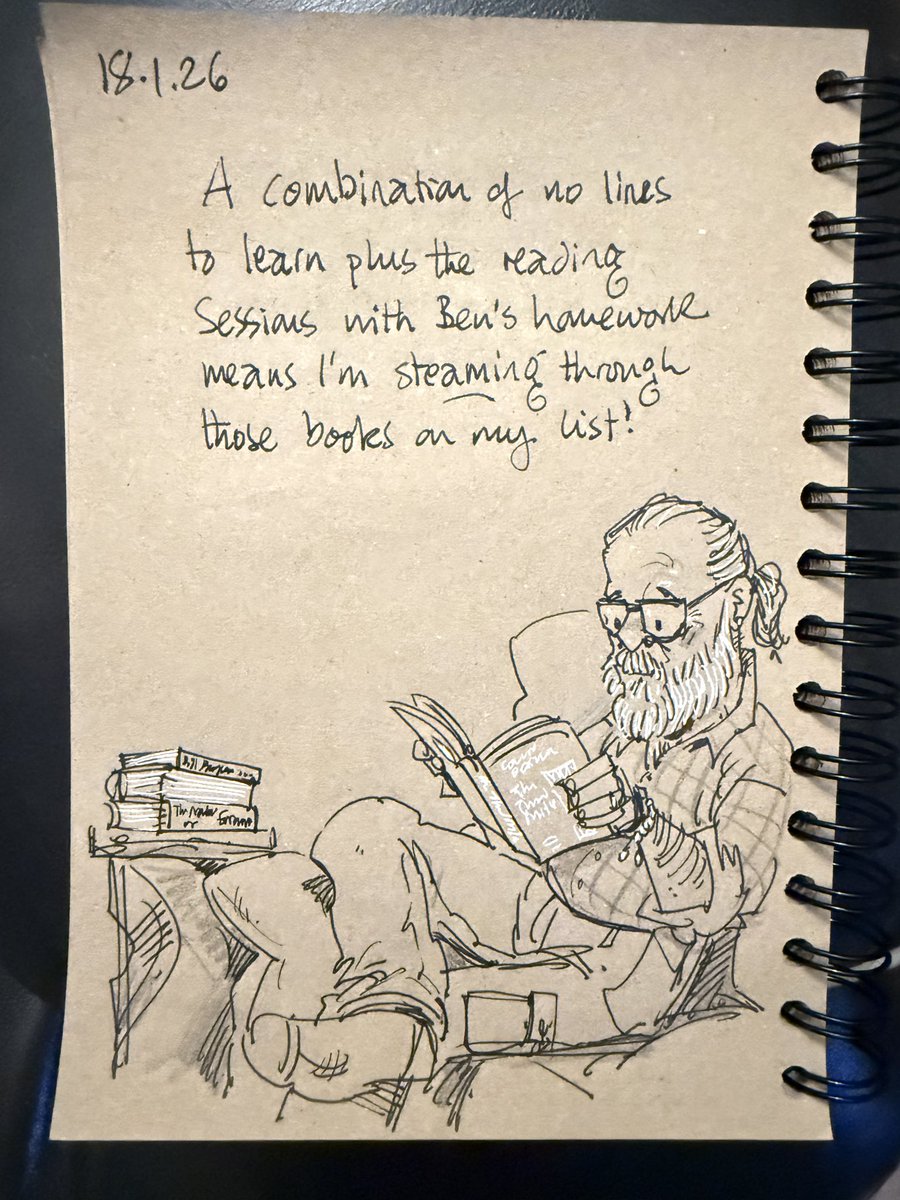 18.1.26
A combination of no lines
to learn plus the reading
Sessions with Ben's homework
means I'm steaming through
those books on my list!
Bill
The
or
The